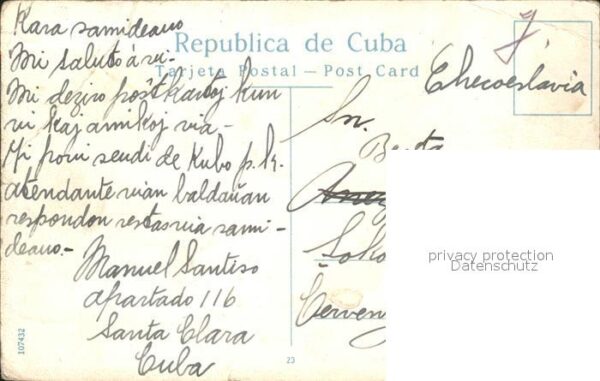 Kara samideano
Mi saluto á vi-
Mi deziro poŝt kartoj kun
vi kaj amikoj via-
Mi povi sendi de Kubo p.k.
atendante vian baldaŭan
respondon restas via sami-
deano.-
Manuel Santiso
apartado 116
Santa Clara
Cuba
Republica de Cuba
Tarjeta Postal — Post Card
Checoeslavia
Sn.
107432
23
privacy protection
Datenschutz